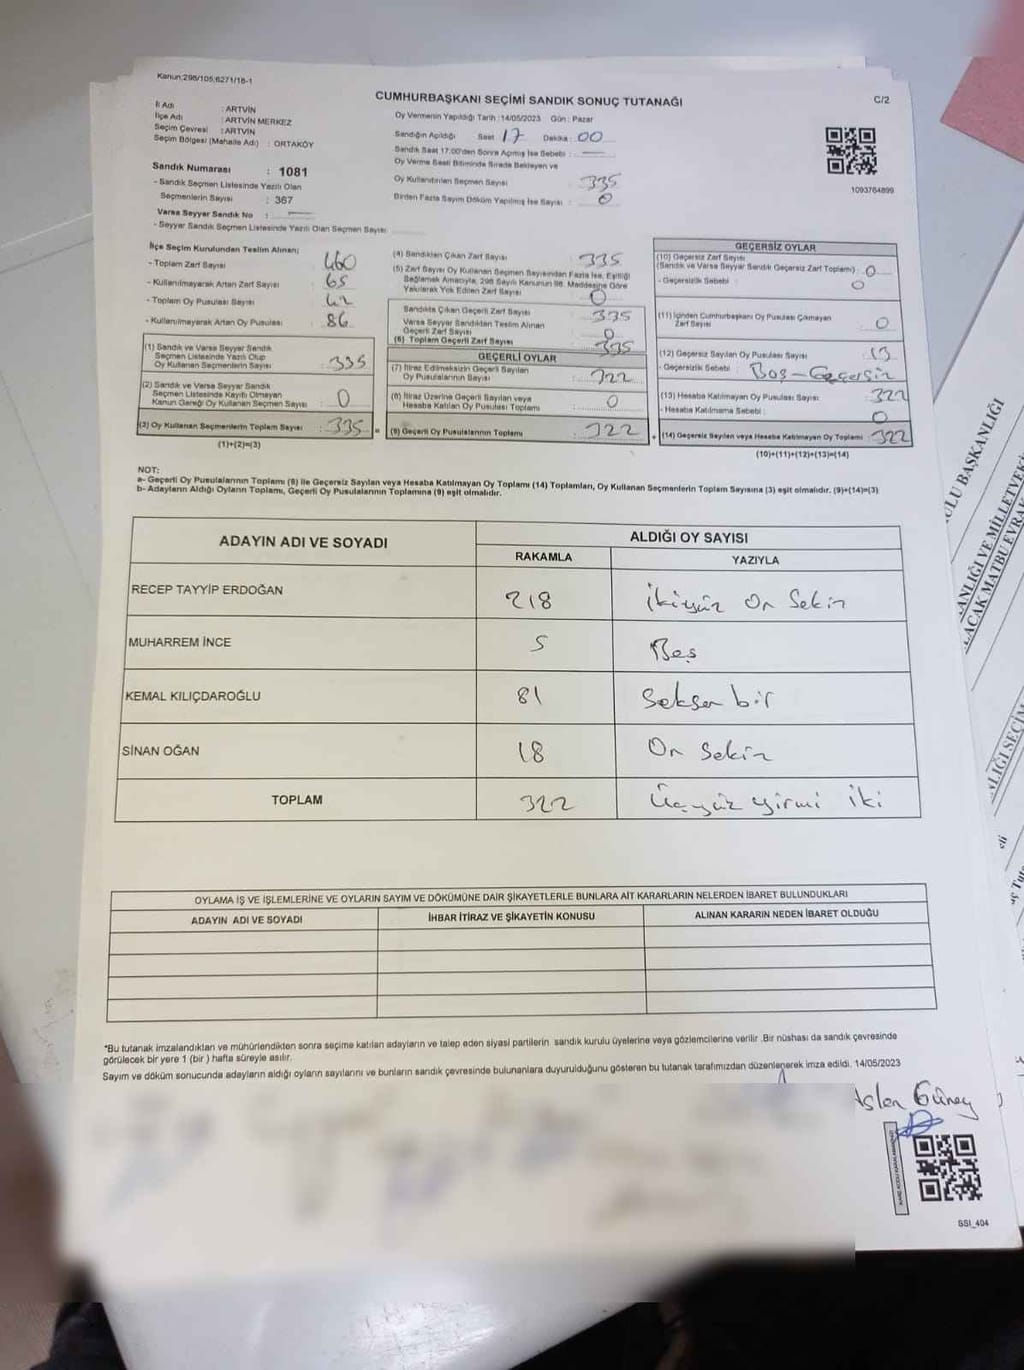 Kanun;298/105;6271/18-1
CUMHURBAŞKANI SEÇİMİ SANDIK SONUÇ TUTANAĞI
C/2
İl Adı : ARTVİN
İlçe Adı : ARTVİN MERKEZ
Seçim Çevresi : ARTVİN
Seçim Bölgesi (Mahalle Adı) : ORTAKÖY
Sandık Numarası : 1081
- Sandık Seçmen Listesinde Yazılı Olan
Seçmenlerin Sayısı : 367
Varsa Seyyar Sandık No : —
- Seyyar Sandık Seçmen Listesinde Yazılı Olan Seçmen Sayısı :
Oy Vermenin Yapıldığı Tarih :14/05/2023 Gün : Pazar
Sandığın Açıldığı Saat 17 Dakika : 00
Sandık Saat 17.00'den Sonra Açılmış İse Sebebi : —
Oy Verme Saati Bitiminde Sırada Bekleyen ve
Oy Kullandırılan Seçmen Sayısı : 335
Birden Fazla Sayım Döküm Yapılmış İse Sayısı : 0
1093764899
İlçe Seçim Kurulundan Teslim Alınan;
- Toplam Zarf Sayısı : 460
- Kullanılmayarak Artan Zarf Sayısı : 65
- Toplam Oy Pusulası Sayısı : 42
- Kullanılmayarak Artan Oy Pusulası : 86
(1) Sandık ve Varsa Seyyar Sandık
Seçmen Listesinde Yazılı Olup
Oy Kullanan Seçmenlerin Sayısı : 335
(2) Sandık ve Varsa Seyyar Sandık
Seçmen Listesinde Kayıtlı Olmayan
Kanun Gereği Oy Kullanan Seçmen Sayısı : 0
(3) Oy Kullanan Seçmenlerin Toplam Sayısı : 335 =
(1)+(2)=(3)
(4) Sandıktan Çıkan Zarf Sayısı : 335
(5) Zarf Sayısı Oy Kullanan Seçmen Sayısından Fazla İse, Eşitliği
Sağlamak Amacıyla, 298 Sayılı Kanunun 98. Maddesine Göre
Yakılarak Yok Edilen Zarf Sayısı : 0
Sandıkta Çıkan Geçerli Zarf Sayısı : 335
Varsa Seyyar Sandıktan Teslim Alınan
Geçerli Zarf Sayısı : 0
(6) Toplam Geçerli Zarf Sayısı : 335
GEÇERLİ OYLAR
(7) İtiraz Edilmeksizin Geçerli Sayılan
Oy Pusulalarının Sayısı : 322
(8) İtiraz Üzerine Geçerli Sayılan veya
Hesaba Katılan Oy Pusulası Toplamı : 0
(9) Geçerli Oy Pusulalarının Toplamı : 322 +
GEÇERSİZ OYLAR
(10) Geçersiz Zarf Sayısı
(Sandık ve Varsa Seyyar Sandık Geçersiz Zarf Toplamı) : 0
- Geçersizlik Sebebi : 0
(11) İçinden Cumhurbaşkanı Oy Pusulası Çıkmayan
Zarf Sayısı : 0
(12) Geçersiz Sayılan Oy Pusulası Sayısı : 13
- Geçersizlik Sebebi : Boş - Geçersiz
(13) Hesaba Katılmayan Oy Pusulası Sayısı : 322
- Hesaba Katılmama Sebebi : 0
(14) Geçersiz Sayılan veya Hesaba Katılmayan Oy Toplamı : 322
(10)+(11)+(12)+(13)=(14)
NOT:
a- Geçerli Oy Pusulalarının Toplamı (9) ile Geçersiz Sayılan veya Hesaba Katılmayan Oy Toplamı (14) Toplamları, Oy Kullanan Seçmenlerin Toplam Sayısına (3) eşit olmalıdır. (9)+(14)=(3)
b- Adayların Aldığı Oyların Toplamı, Geçerli Oy Pusulalarının Toplamına (9) eşit olmalıdır.
ADAYIN ADI VE SOYADI ALDIĞI OY SAYISI
RAKAMLA YAZIYLA
RECEP TAYYİP ERDOĞAN 218 İkiyüz On Sekiz
MUHARREM İNCE 5 Beş
KEMAL KILIÇDAROĞLU 81 Seksen bir
SİNAN OĞAN 18 On Sekiz
TOPLAM 322 Üçyüz yirmi iki
OYLAMA İŞ VE İŞLEMLERİNE VE OYLARIN SAYIM VE DÖKÜMÜNE DAİR ŞİKAYETLERLE BUNLARA AİT KARARLARIN NELERDEN İBARET BULUNDUKLARI
ADAYIN ADI VE SOYADI İHBAR İTİRAZ VE ŞİKAYETİN KONUSU ALINAN KARARIN NEDEN İBARET OLDUĞU
*Bu tutanak imzalandıktan ve mühürlendikten sonra seçime katılan adayların ve talep eden siyasi partilerin sandık kurulu üyelerine veya gözlemcilerine verilir .Bir nüshası da sandık çevresinde
görülecek bir yere 1 (bir ) hafta süreyle asılır.
Sayım ve döküm sonucunda adayların aldığı oyların sayılarını ve bunların sandık çevresinde bulunanlara duyurulduğunu gösteren bu tutanak tarafımızdan düzenlenerek imza edildi. 14/05/2023
Aslan Güney
SSI_404
ULU BAŞKANLIĞI
ANLIĞI VE MİLLETVEK
ACAK MATBU EVRAK
LIĞI SEÇİM